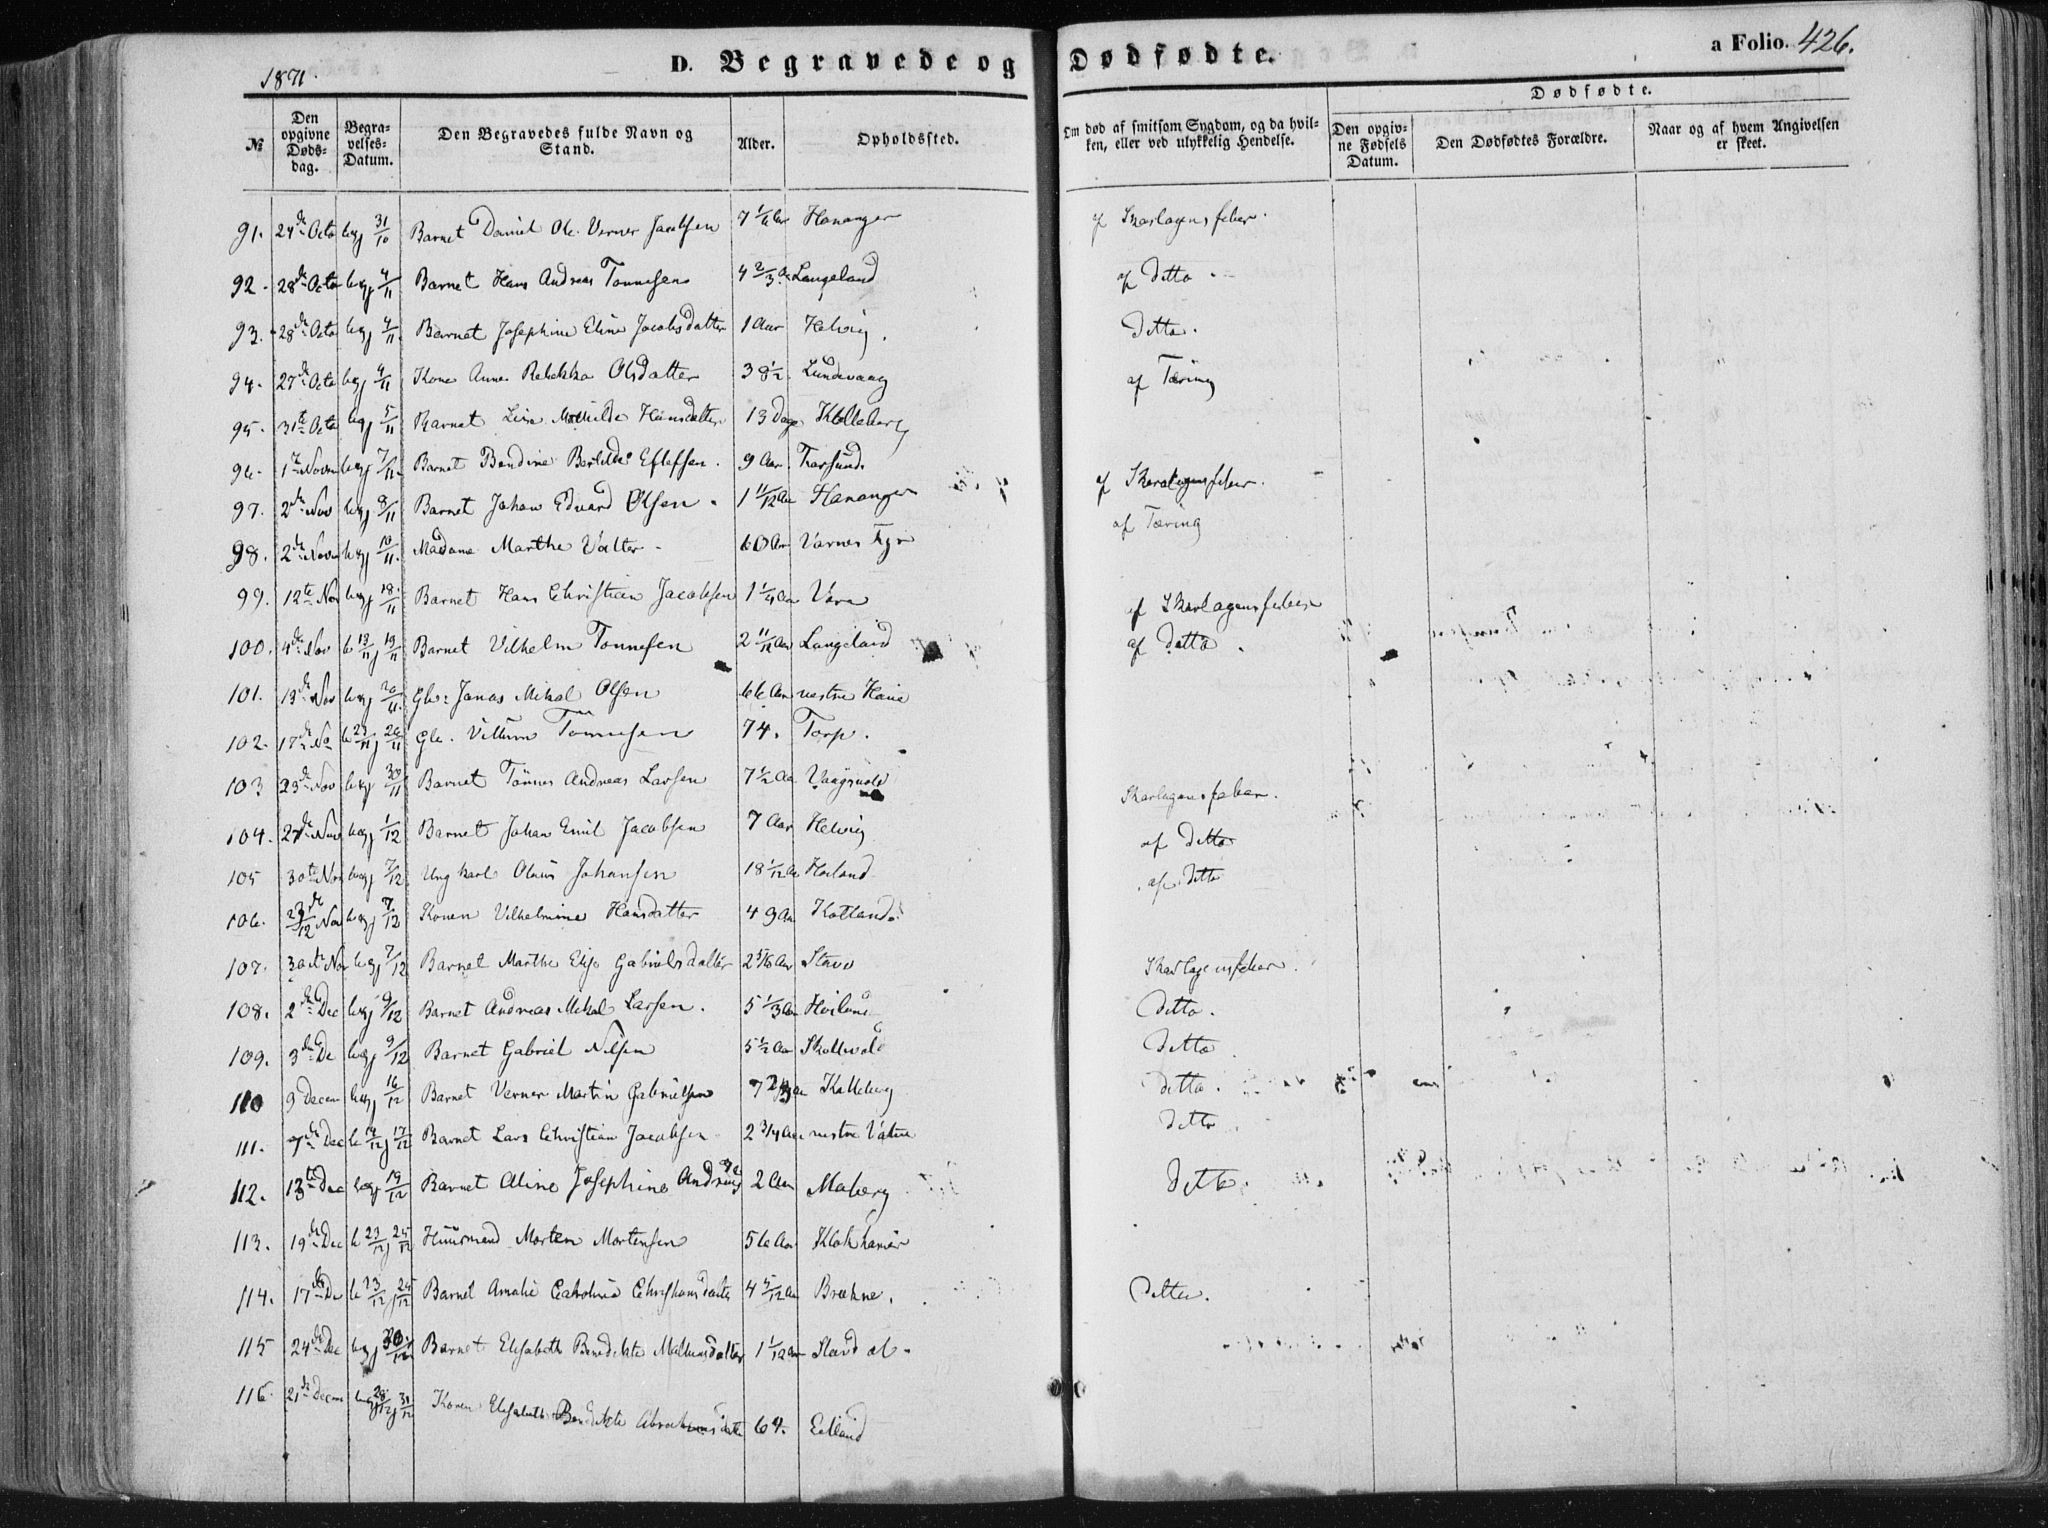 1871.
D. Begravede og Dødfødte.
a Folio. 426.
№
Den opgivne Døds-dag.
Begra-velses-Datum.
Den Begravedes fulde Navn og Stand.
Alder.
Opholdssted.
Om død af smitsom Sygdom, og da hvil-ken, eller ved ulykkelig Hendelse.
Dødfødte.
Den opgiv-ne Fødsels Datum.
Den Dødfødtes Forældre.
Naar og af hvem Angivelsen er skeet.
91. 24de Octo begj 31/10 Barnet Daniel Ole Verner Jacobsen 7 1/6 Aar Hananger af Skarlagensfeber.
92. 28de Octo begj 4/11 Barnet Hans Andreas Tønnesen 4 2/3 Langeland af Ditto
93. 28de Octo begj 4/11 Barnet Josephine Eline Jacobsdatter 1 Aar Helvig Ditto.
94. 27de Octo begj 4/11 Kone Anne Rebekka Olsdatter 38 1/2 Lundevaag af Tæring
95. 31te Octo begj 5/11 Barnet Lise Mathilde Hansdatter 13 Dage Kolleberg
96. 1te Novm begj 7/11 Barnet Bendine Eflefsen. 9 Aar. Farsund af Skarlagensfeber.
97. 2de Nov begj 8/11 Barnet Johan Edvard Olsen 1 11/12 Aar Hananger af Tæring
98. 2de Novm begj 10/11 Madame Marthe Valter 60 Aar Varnes Fyr
99. 12te Nov begj 18/11 Barnet Hans Christian Jacobsen 1 1/4 Aar Vere af Skarlagensfeber
100. 4de Nov b 13/11 j 19/11 Barnet Vilhelm Tønnesen 2 11/12 Aar Langeland af Ditto
101. 13de Nov begj 20/11 Gl: Jonas Mikal Olsen 66 Aar vestre Haue
102. 17de No b 23/11 j 26/11 Gl. Villum Tønnesen 74. Torp.
103 23de Nov begj 30/11 Barnet Tønnes Andreas Larsen 7 1/2 Aar Vaagsvold Skarlagensfeber.
104. 27de Nov begj 1/12 Barnet Johan Emil Jacobsen 7 Aar Helvig af Ditto
105 30te Nov begj 7/12 Ungkarl Olaus Johansen 18 1/12 Aar Høiland af Ditto
106. Nov begj 7/12 Konen Vilhelmine Hansdatter 49 Aar
107. 30te Nov begj 7/12 Barnet Marthe Elise Gabrielsdatter Stave Skarlagensfeber.
108. 2de Dec begj 9/12 Barnet Andreas Mikal Larsen. 5 1/3 Aar Høiland Ditto.
109. 3de De begj 9/12 Barnet Gabriel Nilsen 5 1/2 Aar Skollevold Ditto
110 9 Decem begj 16/12 Barnet Verner Martin Gabrielsen 7 Kolleberg Ditto.
111. 7de Dec b 14/12 j 17/12 Barnet Lars Christian Jacobsen 2 3/4 Aar vestre Vatne Ditto
112. 13te Dec begj 19/12 Barnet Aline Josephine 2 Aar Maberg Ditto
113. 19de Dec b 23/12 j 25/12 Huusmand Morten Mortensen 56 Aar Klokhamer
114. 17de De b 23/12 j 24/12 Barnet Amalie Carolina Christiansdatter 4 5/12 Aar Brækne. Ditto.
115 24de Dec begj 30/12 Barnet Elisabeth Benedikte 1 1/12 Aar
116. 21de Decem beg 28/12 j 31/12 Konen Elisabeth Benedikte Abrahamsdatter 64. Eitland